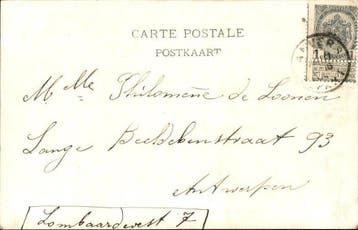 CARTE POSTALE
POSTKAART
ANVERS
Mme Philomène de Loonen
Lange Beeldekenstraat 93
Antwerpen
Lombaardvest 7